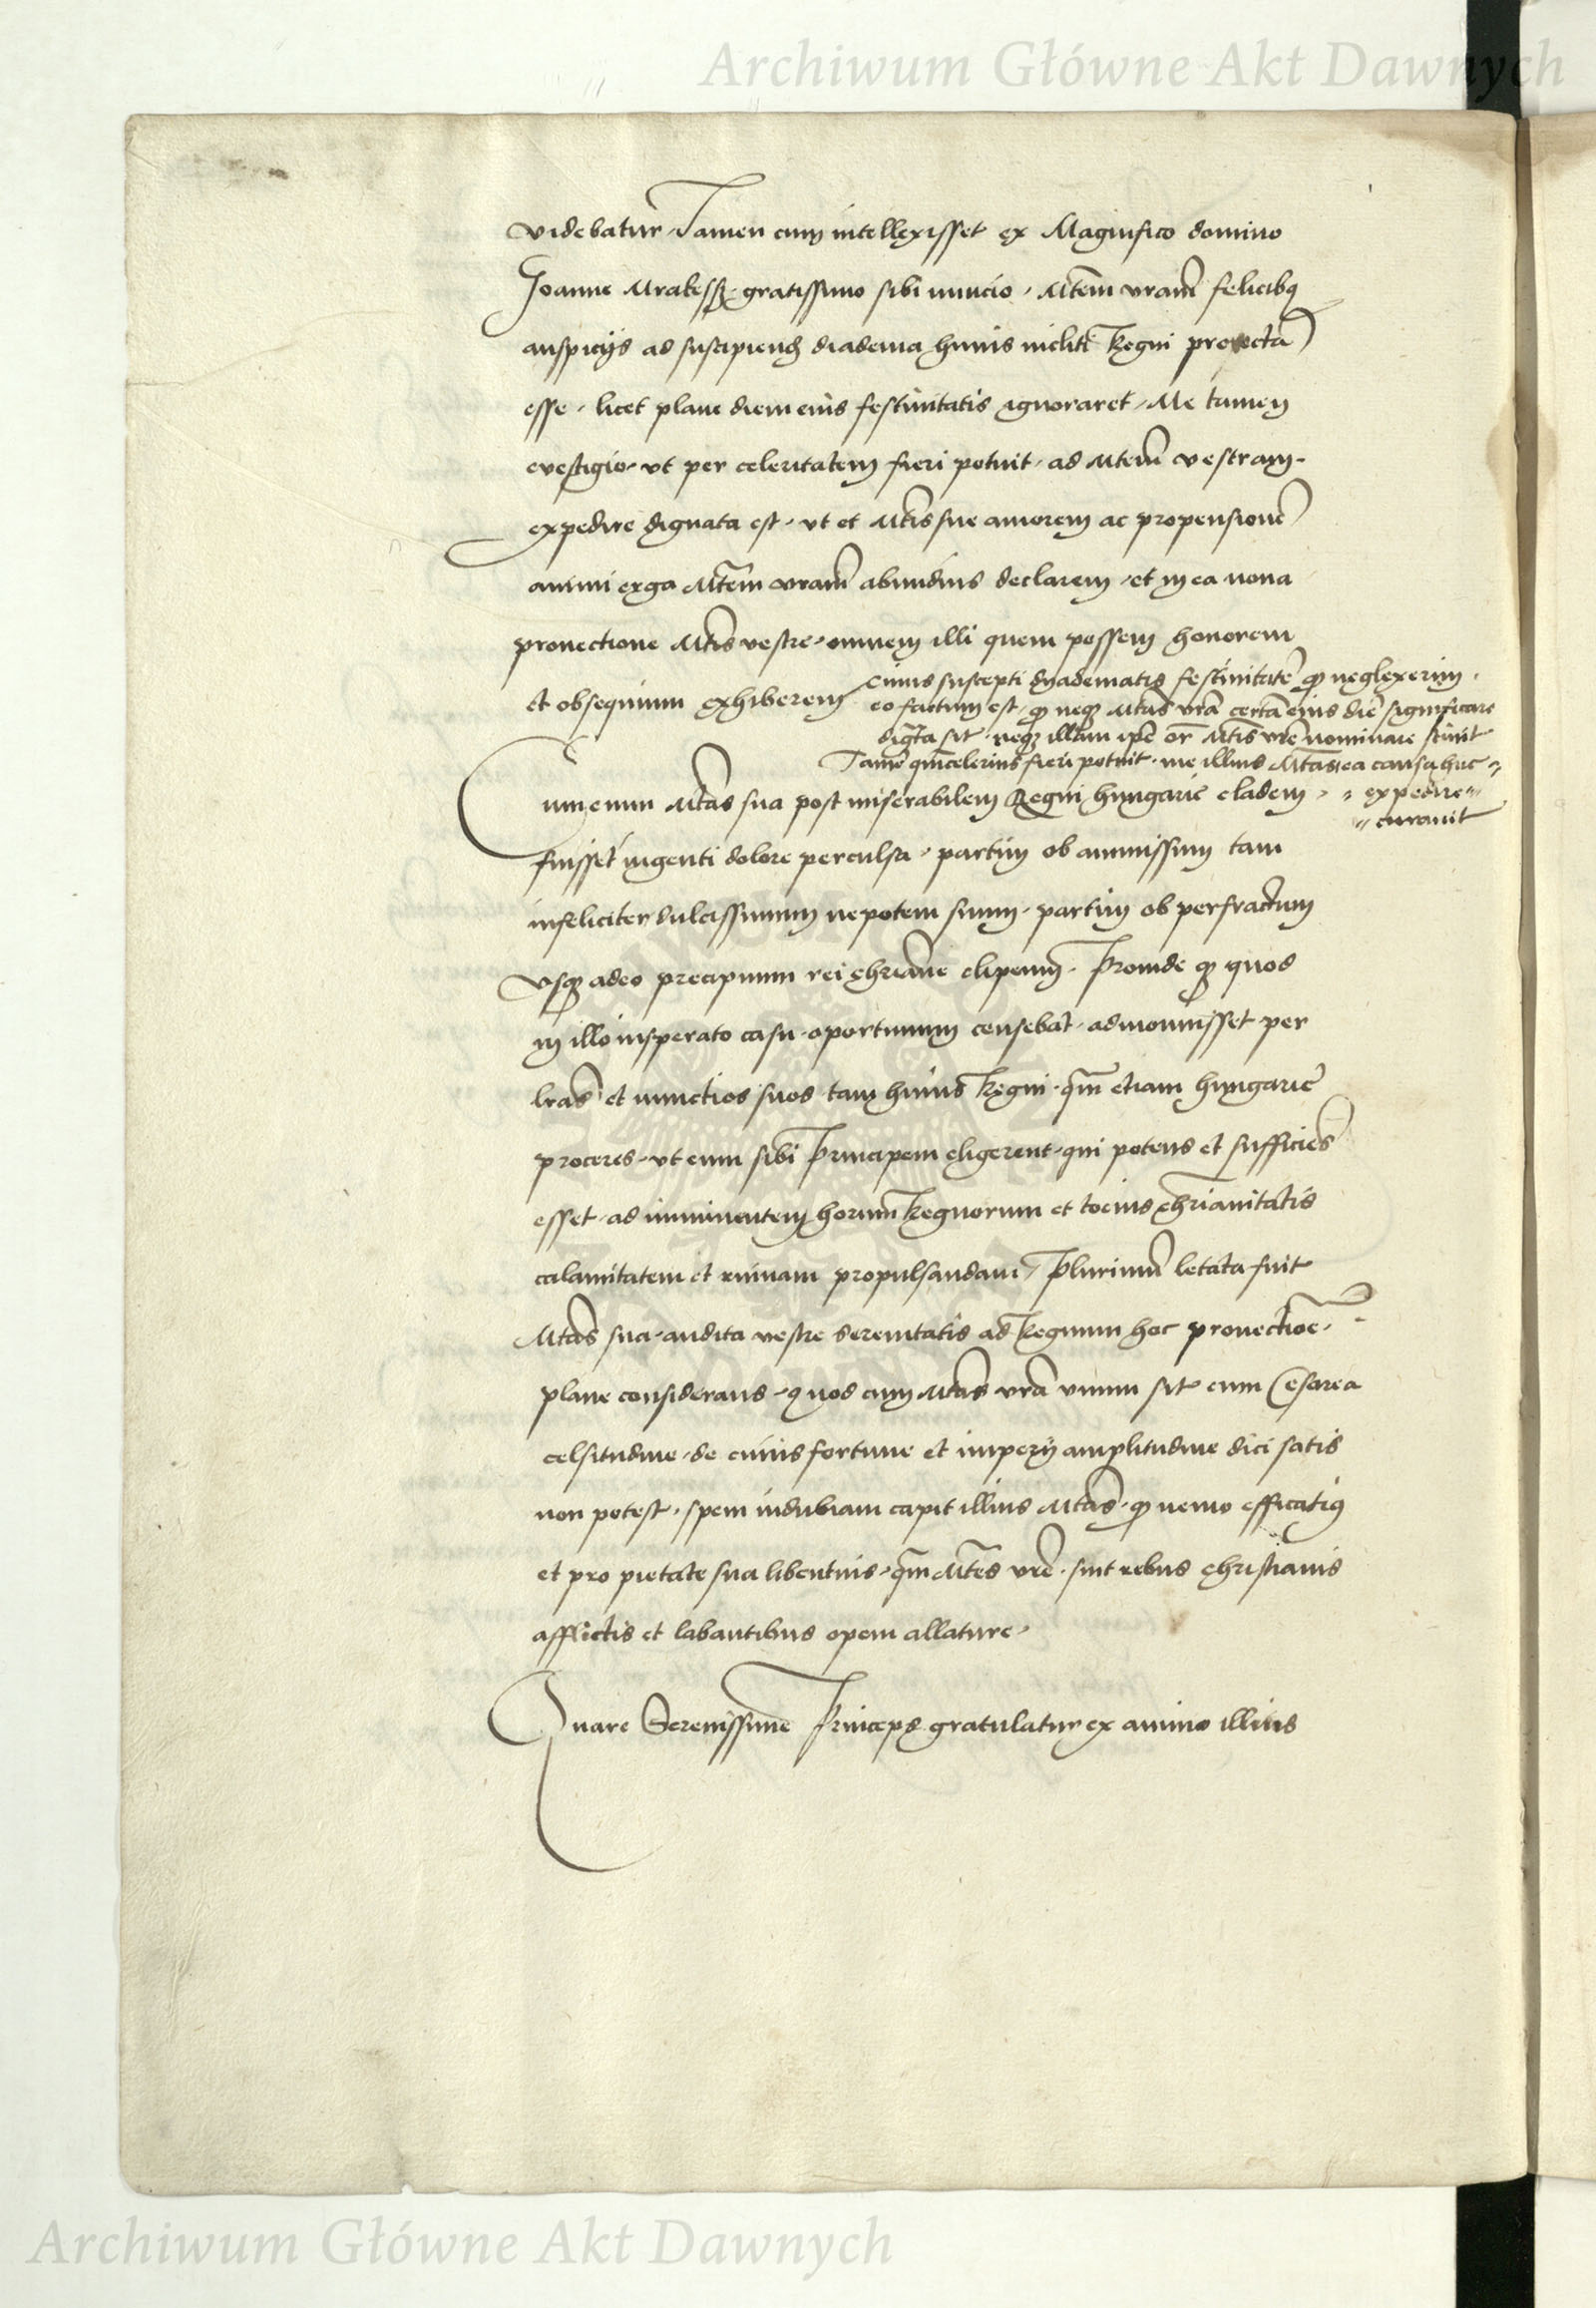 Archiwum Główne Akt Dawnych
videbatur. Tamen cum intellexisset ex Magnifico domino
Joanne Mrakessz gratissimo sibi nuncio, Mtem vram felicibq
auspicijs ad suscipiend diadema huius incliti Regni provecta
esse, licet plane diem eius festivitatis ignoraret, Me tamen
evestigio, vt per celeritatem fieri potuit, ad Mtem vestram
expedire dignata est, vt et Mtis sue amorem ac propensione
animi erga Mtem vram abundius declarem, et in ea noua
prouectione Mtis vestre, omnem illi quem possem honorem
et obsequium exhiberem
cuius suscepti dyadematis festiuitate q neglexerim,
eo factum est, q neqz Mtas vra certa eius die significare
dignta sit, neqz illam ipe or Mtis vre nominare sciuit
Tame qmcelerius fieri potuit, me illius Mtas ea causa huc
expedire
curauit
Cum enim Mtas sua post miserabilem Regni hungarie cladem,
fuisset ingenti dolore perculsa, partim ob ammissum tam
infeliciter dulcissimum nepotem suum, partim ob perfractum
vsqz adeo precipuum rei chriane clipeum. Proinde qz quod
in illo insperato casu oportunum censebat, admonuisset per
lras et nunctios suos tam huius Regni, qm etiam hungarie
proceres, vt eum sibi Principem eligerent, qui potens et sufficies
esset, ad imminentem horum Regnorum et tocius chrianitatis
calamitatem et ruinam propulsandam, Plurimum letata fuit
Mtas sua, audita vestre serenitatis ad Regnum hoc prouectioe,
plane considerans, quod cum Mtas vra vnum sit cum Cesarea
celsitudine, de cuius fortune et imperij amplitudine dici satis
non potest, spem indubiam capit illius Mtas, q nemo efficatiq
et pro pietate sua libentius, qm Mtes vre, sint rebus christianis
afflictis et labantibus opem allature.
Quare Serenissime Princeps gratulatur ex animo illius
Archiwum Główne Akt Dawnych